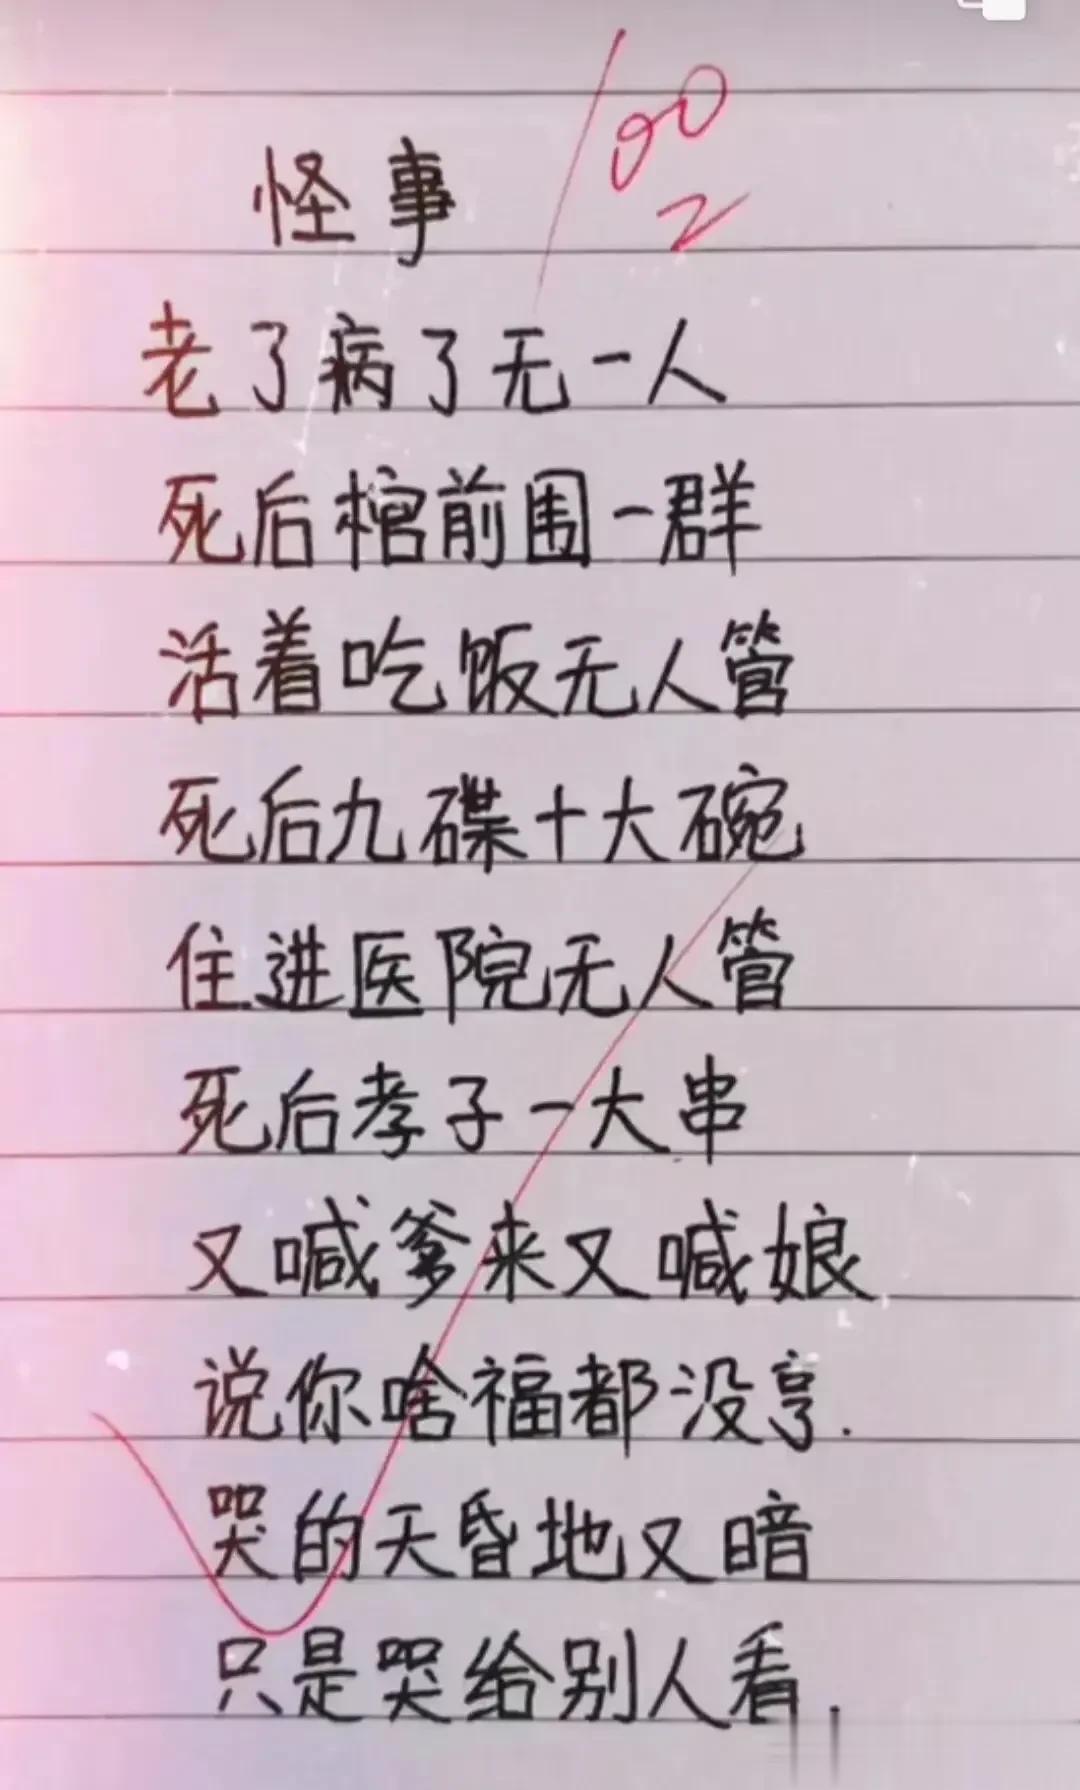 怪事
100
2
老了病了无一人
死后棺前围一群
活着吃饭无人管
死后九碟十大碗
住进医院无人管
死后孝子一大串
又喊爹来又喊娘
说你啥福都没享.
哭的天昏地又暗
只是哭给别人看.